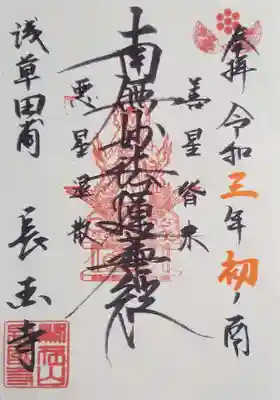 奉拝 令和三年 初ノ酉
善星皆来
南無妙法蓮華経
悪星退散
浅草田甫
長国寺